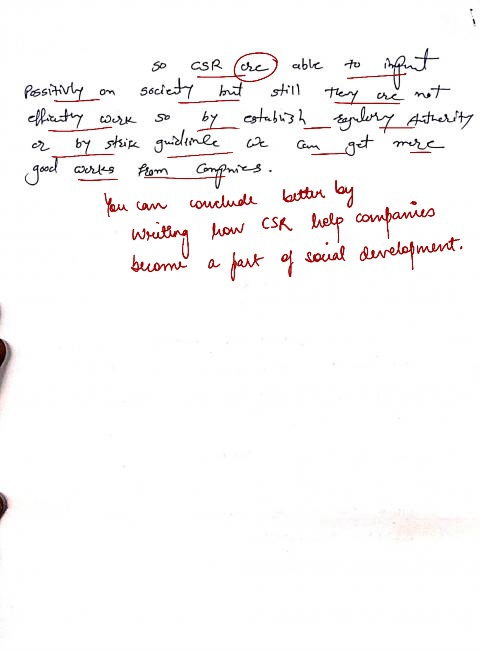 so CSR are able to infput
Possitivly on society but still they are not
efficiatly work so by establish regulory Autherity
or by strike guidinle we can get more
good works from Compnies.
You can conclude better by
writing how CSR help companies
become a part of social development.